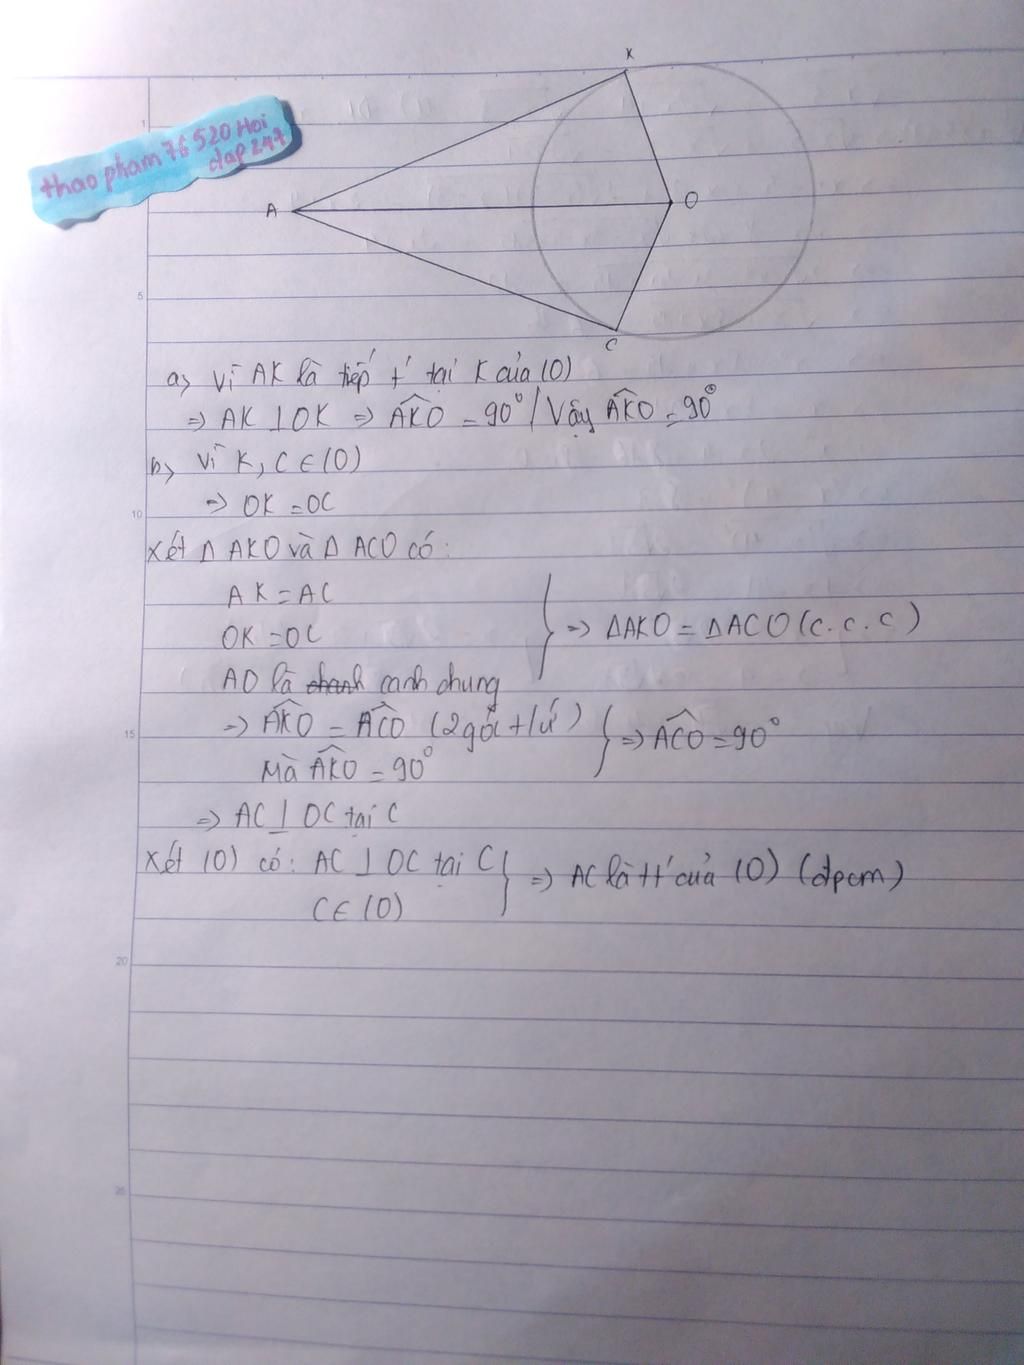 thao pham 76520 Hoi
dap 247
K
A
O
C
1
5
10
15
20
25
a> Vì AK là tiếp t' tại K của (O)
=> AK ⊥ OK => \widehat{AKO} = 90° / Vậy \widehat{AKO} = 90°
b> Vì K, C ∈ (O)
=> OK = OC
Xét Δ AKO và Δ ACO có:
AK = AC
OK = OC
AO là cạnh chung
} => ΔAKO = ΔACO (c.c.c)
=> \widehat{AKO} = \widehat{ACO} (2 góc t/ứ)
Mà \widehat{AKO} = 90°
} => \widehat{ACO} = 90°
=> AC ⊥ OC tại C
Xét (O) có: AC ⊥ OC tại C
C ∈ (O)
} => AC là tt' của (O) (đpcm)